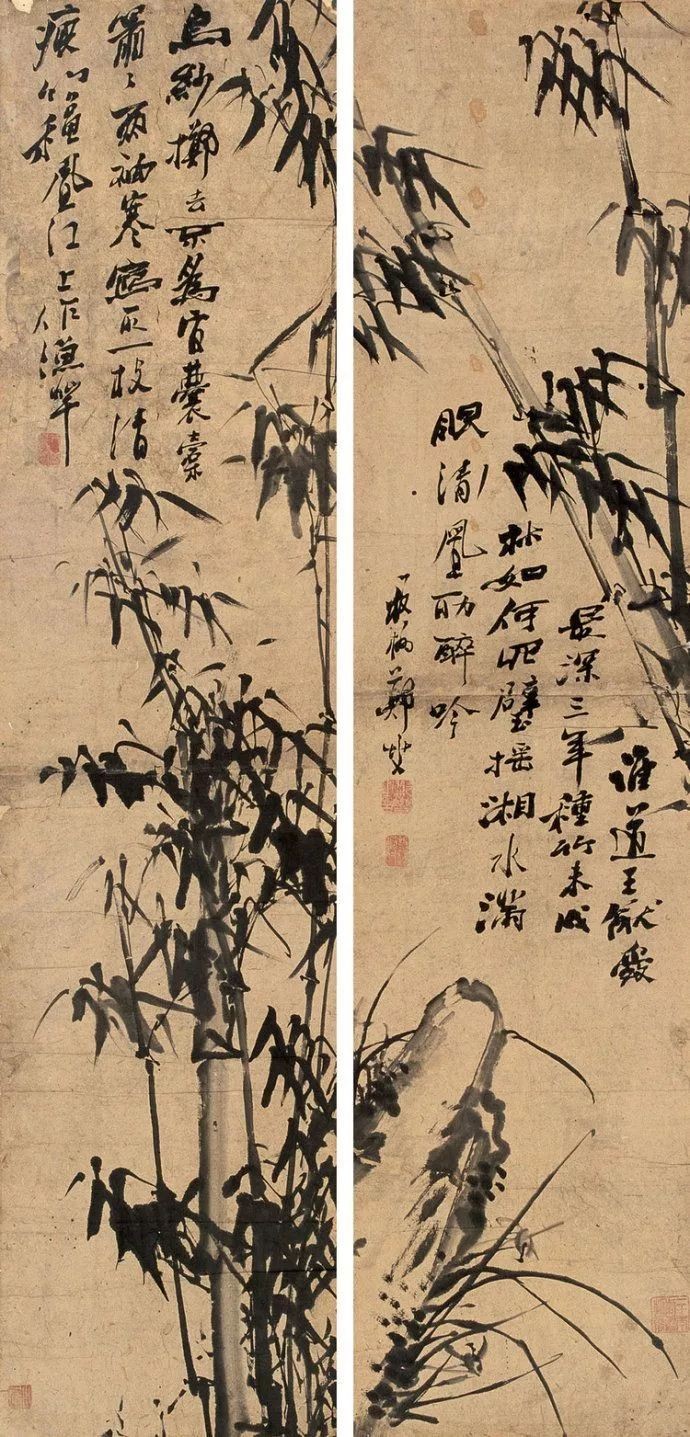 誰道王猷愛
最深三年種竹未成
林如何四壁搖湘水滿
眼清風助醉吟
板橋鄭燮
烏紗擲去不為官囊橐
蕭〻兩袖寒寫取一枝清
瘦竹穐風江上作漁竿